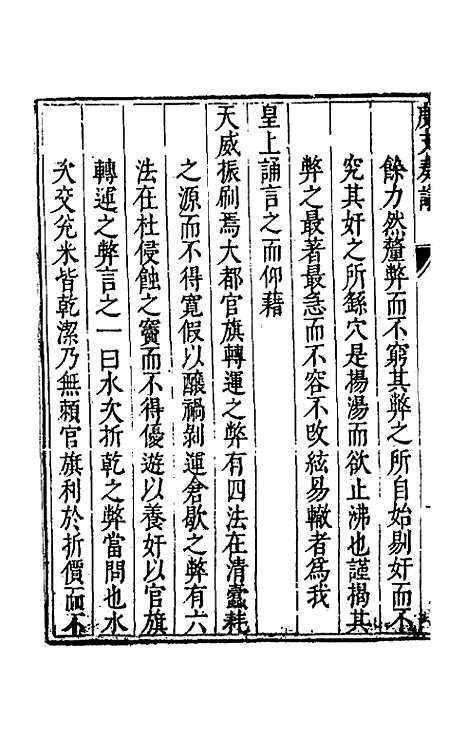 餘力然釐弊而不窮其弊之所自始剔奸而不
究其奸之所繇穴是揚湯而欲止沸也謹揭其
弊之最著最急而不容不改絃易轍者為我
皇上誦言之而仰藉
天威振刷焉大都官旗轉運之弊有四法在清蠹耗
之源而不得寬假以釀禍剝運倉歇之弊有六
法在杜侵蝕之竇而不得優遊以養奸以官旗
轉運之弊言之一曰水次折乾之弊當問也水
次交兊米皆乾潔乃無賴官旗利於折價而不